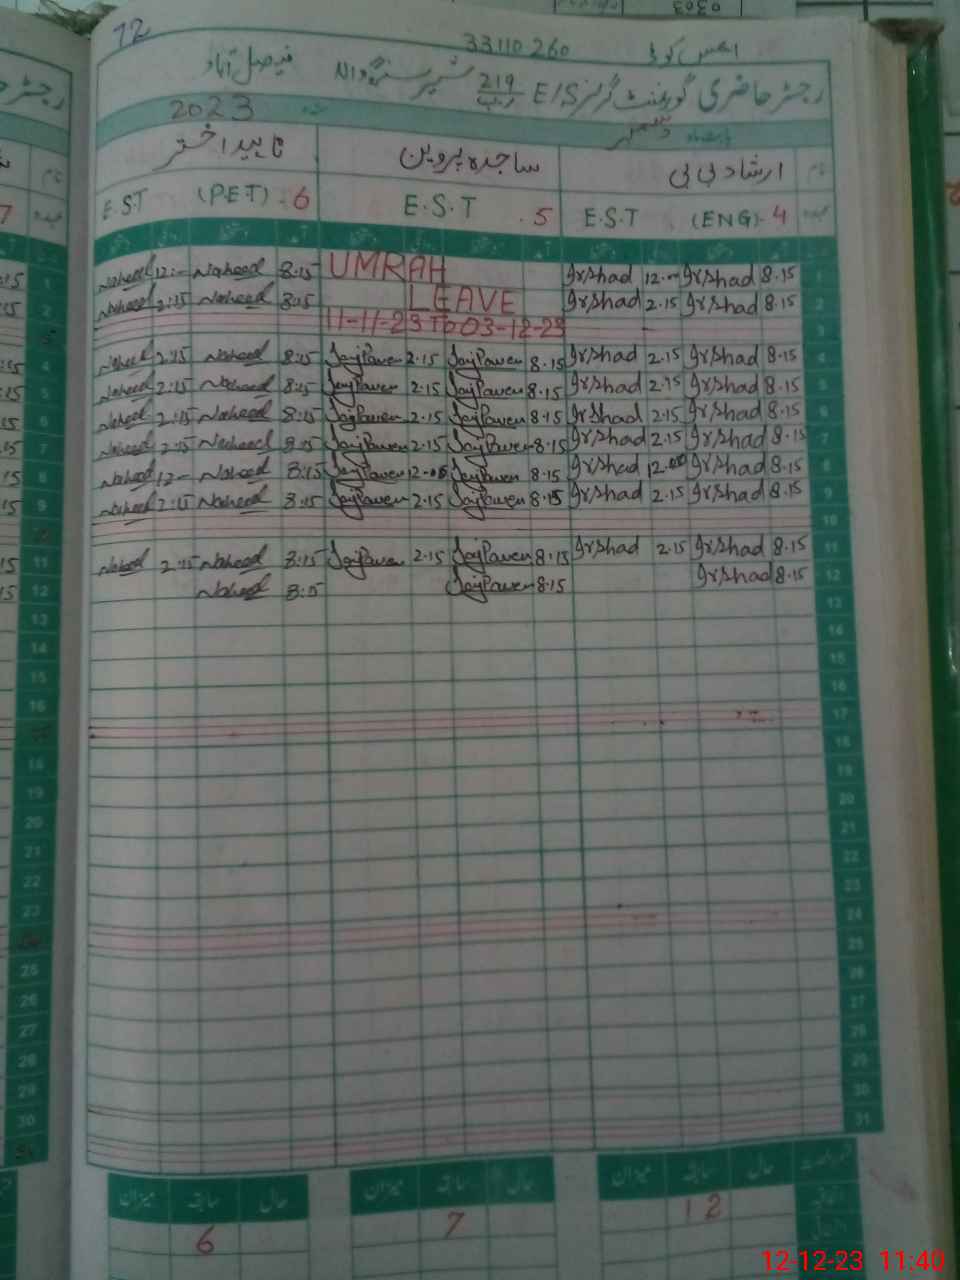 12
33110260 ایمس کوڈ
رجسٹر حاضری گورنمنٹ گرلز E/S 219 ر ب فیصل آباد
دسمبر 2023
نام ارشاد بی بی ساجدہ پروین ناہید اختر
عہدہ E.S.T (ENG)- 4 E.S.T .5 E.S.T (PET) - 6
1 8.15 Irshad 12.00 Irshad UMRAH 8:15 Naheed 12:- Naheed
2 8.15 Irshad 2.15 Irshad LEAVE 8:15 Naheed 2:15 Naheed
3 11-11-23 To 03-12-23
4 8.15 Irshad 2.15 Irshad 8.15 SajPaveen 2.15 SajPaveen 8:15 Naheed 2:15 Naheed
5 8.15 Irshad 2.15 Irshad 8.15 SajPaveen 2.15 SajPaveen 8:15 Naheed 2:15 Naheed
6 8.15 Irshad 2.15 Irshad 8.15 SajPaveen 2.15 SajPaveen 8:15 Naheed 2:15 Naheed
7 8.15 Irshad 2.15 Irshad 8.15 SajPaveen 2.15 SajPaveen 8:15 Naheed 2:15 Naheed
8 8.15 Irshad 12.00 Irshad 8.15 SajPaveen 12-00 SajPaveen 8:15 Naheed 12- Naheed
9 8.15 Irshad 2.15 Irshad 8.15 SajPaveen 2.15 SajPaveen 8:15 Naheed 2:15 Naheed
10
11 8.15 Irshad 2.15 Irshad 8.15 SajPaveen 2.15 SajPaveen 8:15 Naheed 2:15 Naheed
12 8.15 Irshad 8.15 SajPaveen 8:15 Naheed
13
14
15
16
17
18
19
20
21
22
23
24
25
26
27
28
29
30
31
حال سابقہ میزان حال سابقہ میزان حال سابقہ میزان
12 7 6
12-12-23 11:40